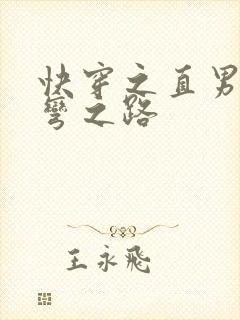 快穿之直男
弯之路
王永飛